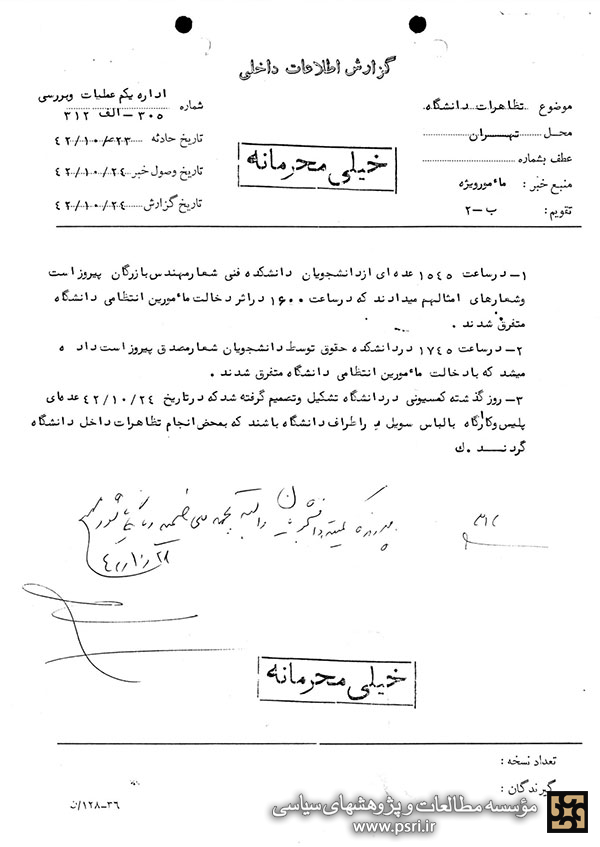 گزارش اطلاعات داخلی
موضوع تظاهرات دانشگاه
محل تهران
عطف بشماره
منبع خبر : مأمورویژه
تقویم : ب-۲
خیلی محرمانه
اداره یکم عملیات وبررسی
شماره ۳۰۵-الف ۳۱۲
تاریخ حادثه ۴۲/۱۰/۲۳
تاریخ وصول خبر ۴۲/۱۰/۲۴
تاریخ گزارش ۴۲/۱۰/۲۴
۱- درساعت ۱۵۴۵ عده ای ازدانشجویان دانشکده فنی شعارمهندس بازرگان پیروز است
وشعارهای امثالهم میدادند که درساعت ۱۶۰۰ دراثر دخالت مأمورین انتظامی دانشگاه
متفرق شدند .
۲- درساعت ۱۷۴۵ دردانشکده حقوق توسط دانشجویان شعارمصدق پیروز است داد ه
میشد که بادخالت مأمورین انتظامی دانشگاه متفرق شدند .
۳- روز گذشته کمسیونی دردانشگاه تشکیل وتصمیم گرفته شد که درتاریخ ۴۲/۱۰/۲۴ عده‌ای
پلیس وکارگاه بالباس سویل در اطراف دانشگاه باشند که بمحض انجام تظاهرات داخل دانشگاه
گردند . ک
خیلی محرمانه
تعداد نسخه :
گیرندگان :
۳۶-۱۲۸/ن
مؤسسه مطالعات و پژوهشهای سیاسی
www.psri.ir